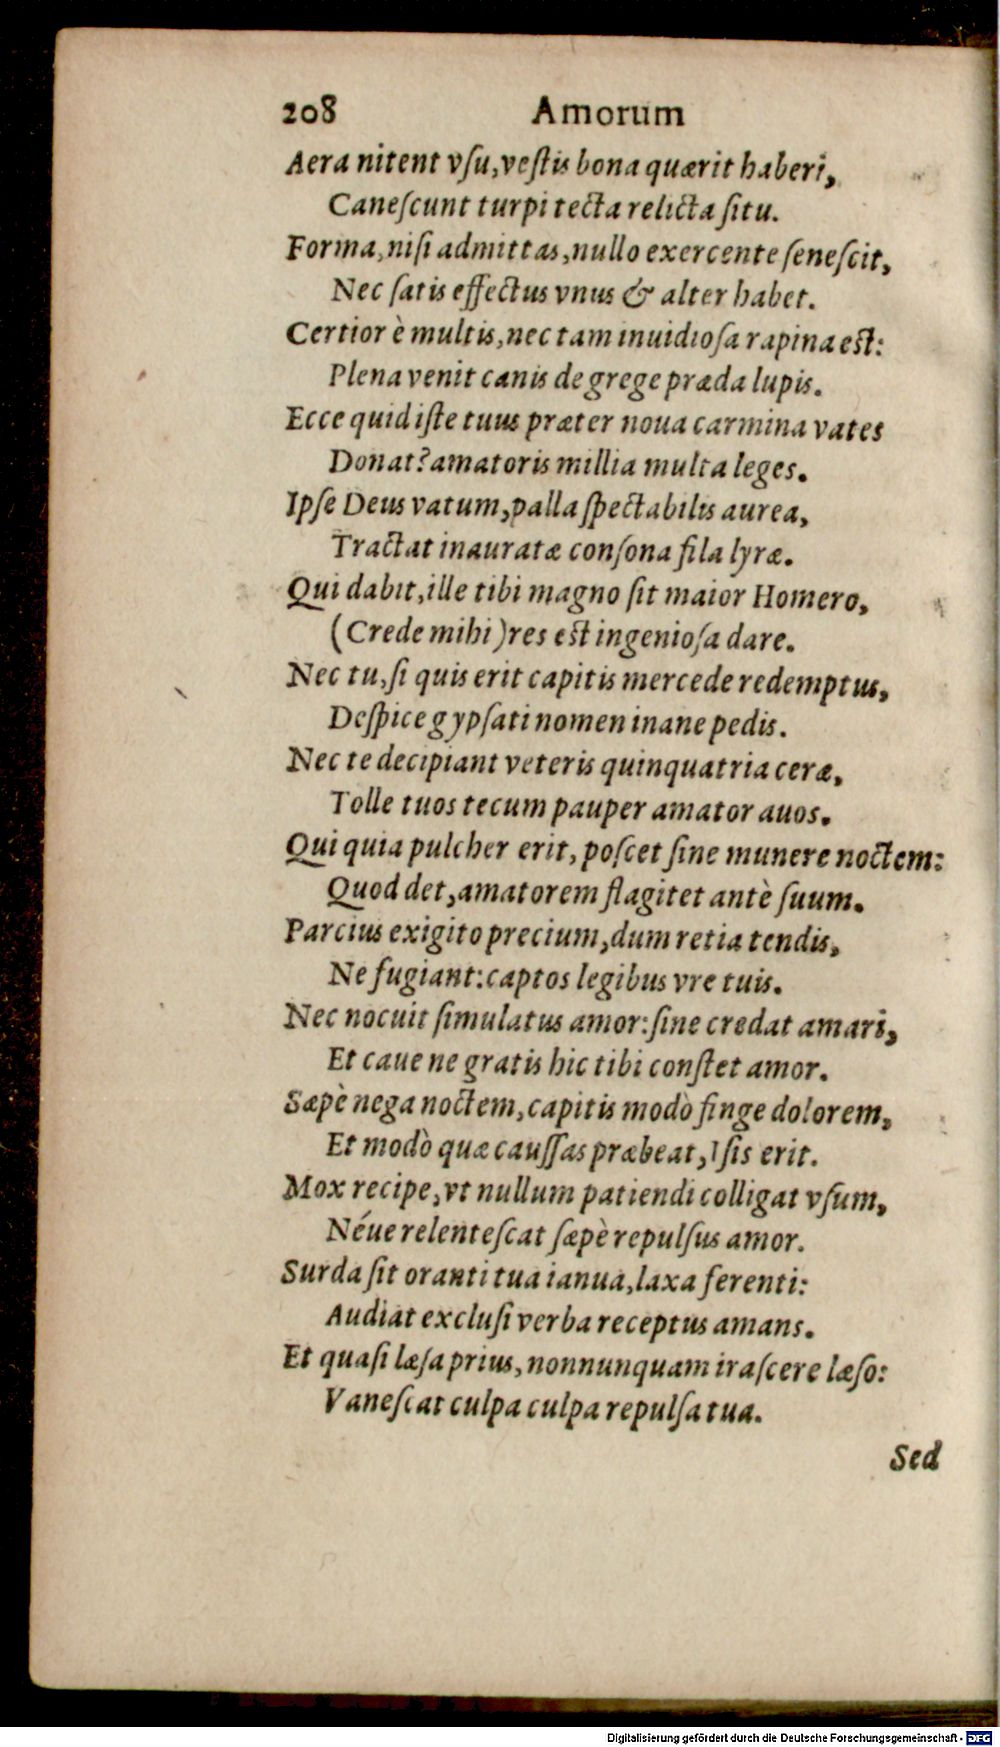 208 Amorum
Aera nitent vſu, veſtis bona quærit haberi,
Caneſcunt turpi tecta relicta ſitu.
Forma, niſi admittas, nullo exercente ſeneſcit,
Nec ſatis effectus vnus & alter habet.
Certior è multis, nec tam inuidioſa rapina est:
Plena venit canis de grege præda lupis.
Ecce quid iſte tuus præter noua carmina vates
Donat? amatoris millia multa leges.
Ipſe Deus vatum, palla ſpectabilis aurea,
Tractat inauratæ conſona fila lyræ.
Qui dabit, ille tibi magno ſit maior Homero,
(Crede mihi) res est ingenioſa dare.
Nec tu, ſi quis erit capitis mercede redemptus,
Deſpice gypſati nomen inane pedis.
Nec te decipiant veteris quinquatria ceræ,
Tolle tuos tecum pauper amator auos.
Qui quia pulcher erit, poſcet ſine munere noctem:
Quod det, amatorem flagitet antè ſuum.
Parcius exigito precium, dum retia tendis,
Ne fugiant: captos legibus vre tuis.
Nec nocuit ſimulatus amor: ſine credat amari,
Et caue ne gratis hic tibi conſtet amor.
Sæpè nega noctem, capitis modò finge dolorem,
Et modò quæ cauſſas præbeat, Iſis erit.
Mox recipe, vt nullum patiendi colligat vſum,
Néue relenteſcat ſæpè repulſus amor.
Surda ſit oranti tua ianua, laxa ferenti:
Audiat excluſi verba receptus amans.
Et quaſi læſa prius, nonnunquam iraſcere læſo:
Vaneſcat culpa culpa repulſa tua.
Sed
Digitalisierung gefördert durch die Deutsche Forschungsgemeinschaft - DFG